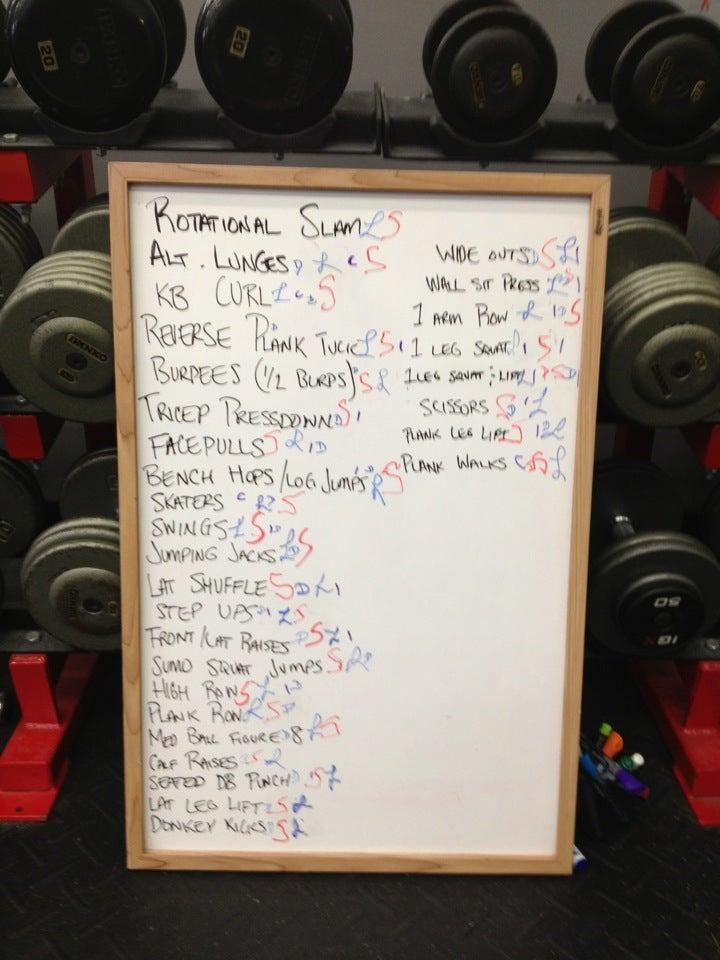 20
20
ROTATIONAL SLAM L S
ALT. LUNGES D L C S
KB CURL L C S
REVERSE PLANK TUCK L S 1
BURPEES (1/2 BURPS) S L
TRICEP PRESSDOWN D S 1
FACEPULLS S L 1 D
BENCH HOPS / LOG JUMPS L S
SKATERS C L S
SWINGS L S
JUMPING JACKS L D S
LAT SHUFFLE S D L 1
STEP UPS 1 L S
FRONT / LAT RAISES D S L 1
SUMO SQUAT JUMPS S L
HIGH ROW S L 1 D
PLANK ROW L S D
MED BALL FIGURE 8 L S
CALF RAISES S L
SEATED DB PUNCH S L
LAT LEG LIFT S L
DONKEY KICKS S L
WIDE OUTS D S L 1
WALL SIT PRESS L S 1
1 ARM ROW L 1 D S
1 LEG SQUAT 1 S 1
1 LEG SQUAT ; LIFT L 1 S D 1
SCISSORS S D 1 L
PLANK LEG LIFT S 1 L
PLANK WALKS C S L
50